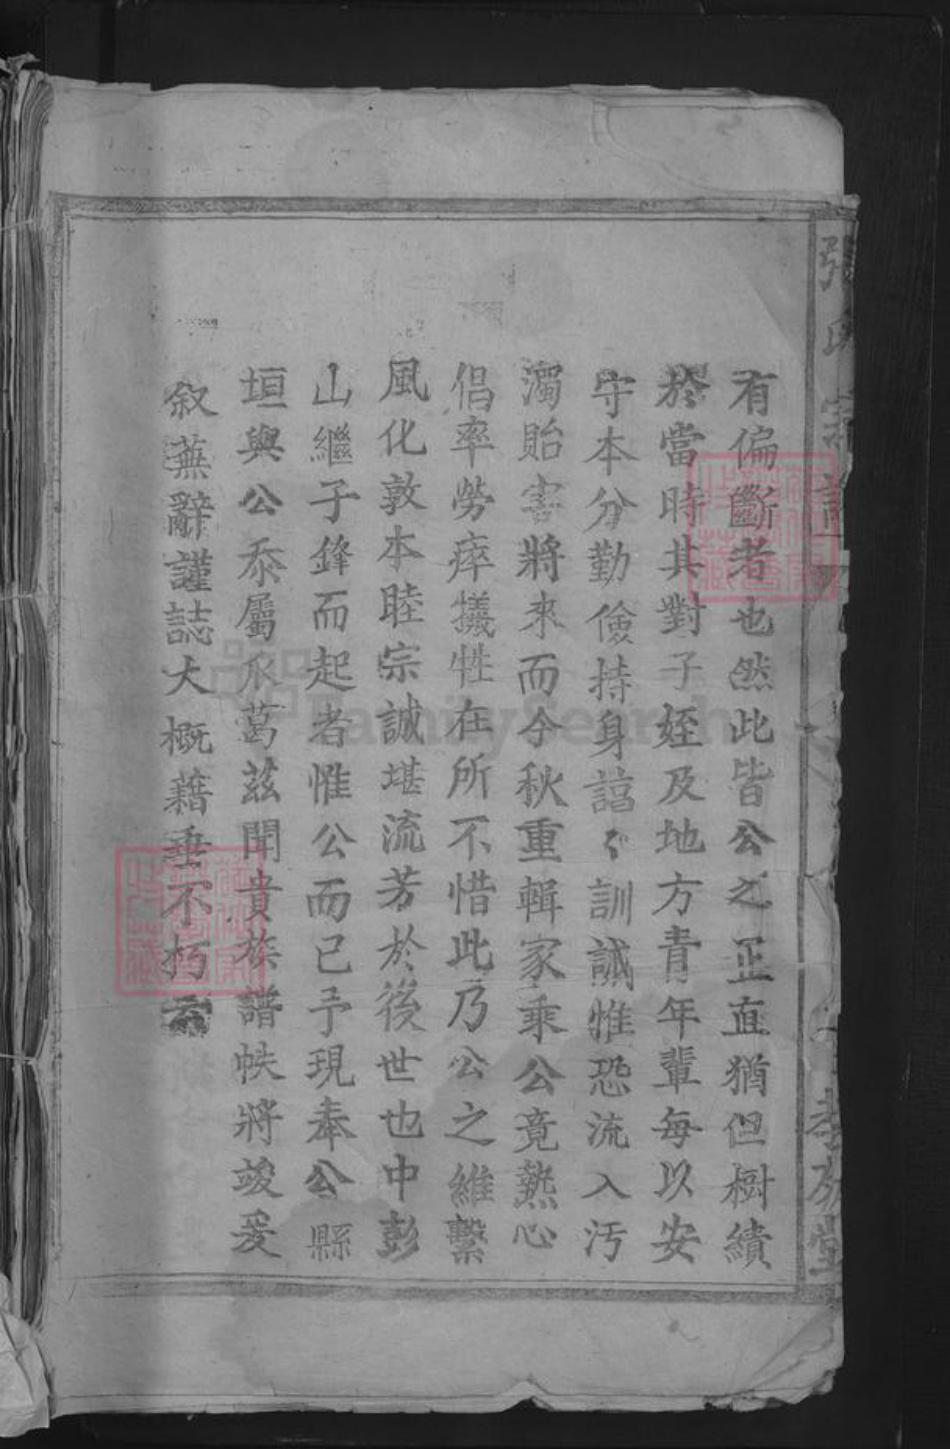 張氏宗譜
孝友堂
有偏斷者也然此皆公之正直猶但樹績
於當時其對子姪及地方青年輩每以安
守本分勤儉持身諄〻訓誡惟恐流入污
濁貽害將來而今秋重輯家乘公竟熱心
倡率勞瘁犧牲在所不惜此乃公之維繫
風化敦本睦宗誠堪流芳於後世也中彭
山繼子鋒而起者惟公而已予現奉公縣
垣與公忝屬瓜葛茲聞貴族譜帙將竣爰
叙蕪辭謹誌大概藉垂不朽云
FamilySearch